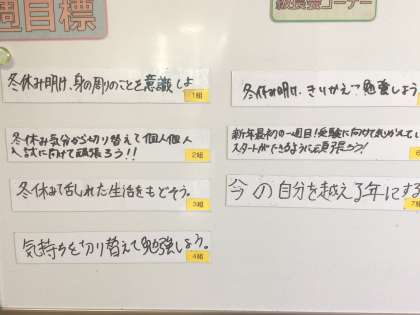 週目標
冬休み明け、身の周りのことを意識しよ
1組
冬休み気分から切り替えて個人個人
入試に向けて頑張ろう!!
2組
冬休みで乱れた生活をもどそう。
3組
気持ちを切り替えて勉強しよう。
4組
級長会コーナー
冬休み明け、きりかえて勉強しよう
新年最初の一週目!受験に向けて
スタートができるように頑張ろう!
6
今の自分を越える年にする
7組